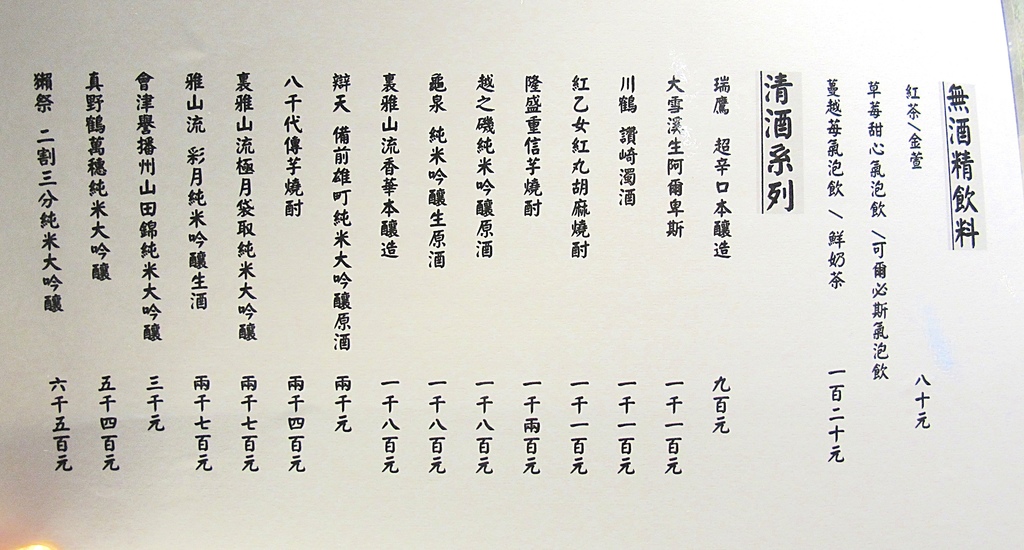 無酒精飲料
紅茶/金萱 八十元
草莓甜心氣泡飲 \可爾必斯氣泡飲
蔓越莓氣泡飲 \ 鮮奶茶 一百二十元
清酒系列
瑞鷹 超辛口本釀造 九百元
大雪溪生阿爾卑斯 一千一百元
川鶴 讚崎濁酒 一千一百元
紅乙女紅丸胡麻燒酎 一千一百元
隆盛重信芋燒酎 一千兩百元
越之磯純米吟釀原酒 一千八百元
龜泉 純米吟釀生原酒 一千八百元
裏雅山流香華本釀造 一千八百元
辯天 備前雄町純米大吟釀原酒 兩千元
八千代傳芋燒酎 兩千四百元
裏雅山流極月袋取純米大吟釀 兩千七百元
雅山流 彩月純米吟釀生酒 兩千七百元
會津譽播州山田錦純米大吟釀 三千元
真野鶴萬穗純米大吟釀 五千四百元
獺祭 二割三分純米大吟釀 六千五百元